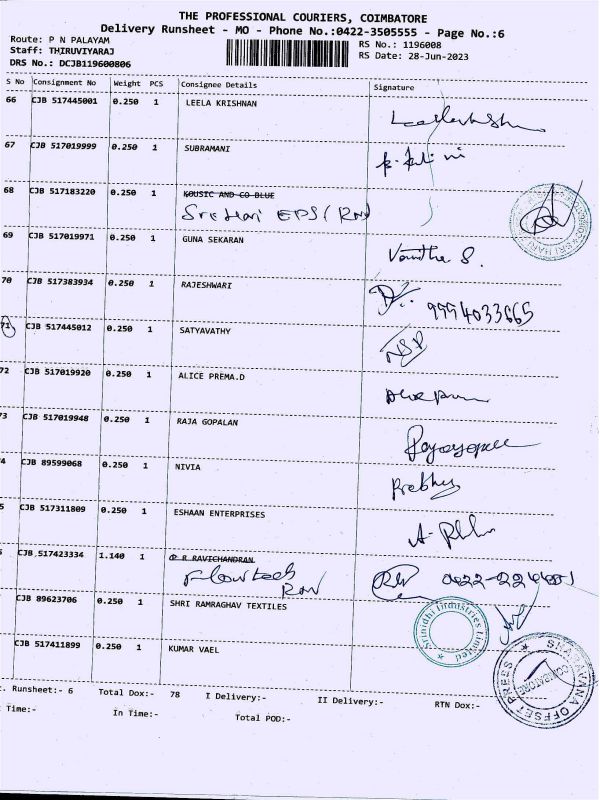 THE PROFESSIONAL COURIERS, COIMBATORE
Delivery Runsheet - MO - Phone No.:0422-3505555 - Page No.:6
Route: P N PALAYAM
RS No.: 1196008
Staff: THIRUVIYARAJ
RS Date: 28-Jun-2023
DRS No.: DCJB119600806
S No Consignment No Weight PCS Consignee Details Signature
66 CJB 517445001 0.250 1 LEELA KRISHNAN
67 CJB 517019999 0.250 1 SUBRAMANI
68 CJB 517183220 0.250 1 KOUSIC AND CO BLUE
Sri Hari EPS (RN)
69 CJB 517019971 0.250 1 GUNA SEKARAN Vanitha S.
70 CJB 517383934 0.250 1 RAJESHWARI 9994033665
71 CJB 517445012 0.250 1 SATYAVATHY NSP
72 CJB 517019920 0.250 1 ALICE PREMA.D
73 CJB 517019948 0.250 1 RAJA GOPALAN
4 CJB 89599068 0.250 1 NIVIA Prabhu
5 CJB 517311809 0.250 1 ESHAAN ENTERPRISES
CJB 517423334 1.140 1 P R RAVICHANDRAN
Flowtech
CJB 89623706 0.250 1 SHRI RAMRAGHAV TEXTILES
Srinidhi Industries Limited
CJB 517411899 0.250 1 KUMAR VAEL
SHARAVANA OFFSET PRESS
COIMBATORE
. Runsheet:- 6 Total Dox:- 78 I Delivery:- II Delivery:- RTN Dox:-
Time:- In Time:- Total POD:-